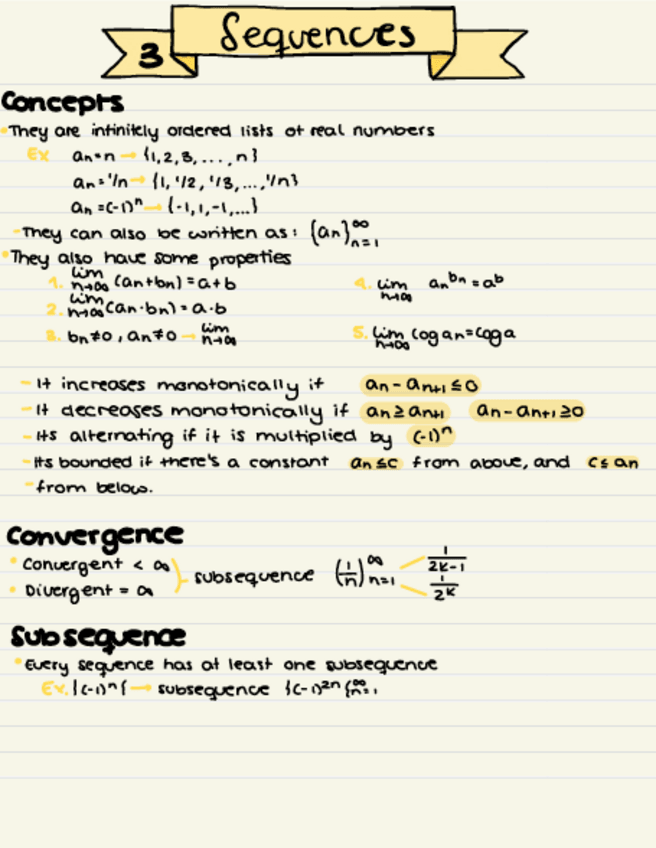 3 Sequences
Concepts
• They are infinitely ordered lists of real numbers
Ex an=n → {1,2,3, ..., n}
an=1/n → {1, 1/2, 1/3, ..., 1/n}
an=(-1)ⁿ → {-1,1,-1,...}
- They can also be written as: (an)^∞_n=1
• They also have some properties
1. lim n→∞ (an+bn)=a+b
4. lim n→∞ an^bn = a^b
2. lim n→∞ (an·bn)=a·b
3. bn≠0, an≠0 → lim n→∞
5. lim n→∞ log an=log a
- It increases monotonically if an - an+1 ≤ 0
- It decreases monotonically if an ≥ an+1 an - an+1 ≥0
- Its alternating if it is multiplied by (-1)ⁿ
- Its bounded if there's a constant an ≤c from above, and c≤ an
- from below.
Convergence
• Convergent < ∞
• Divergent = ∞
} subsequence (1/n)^∞_n=1
1/2k-1
1/2k
Subsequence
• Every sequence has at least one subsequence
Ex. {(-1)ⁿ{ → subsequence {(-1)²ⁿ{^∞_n=1